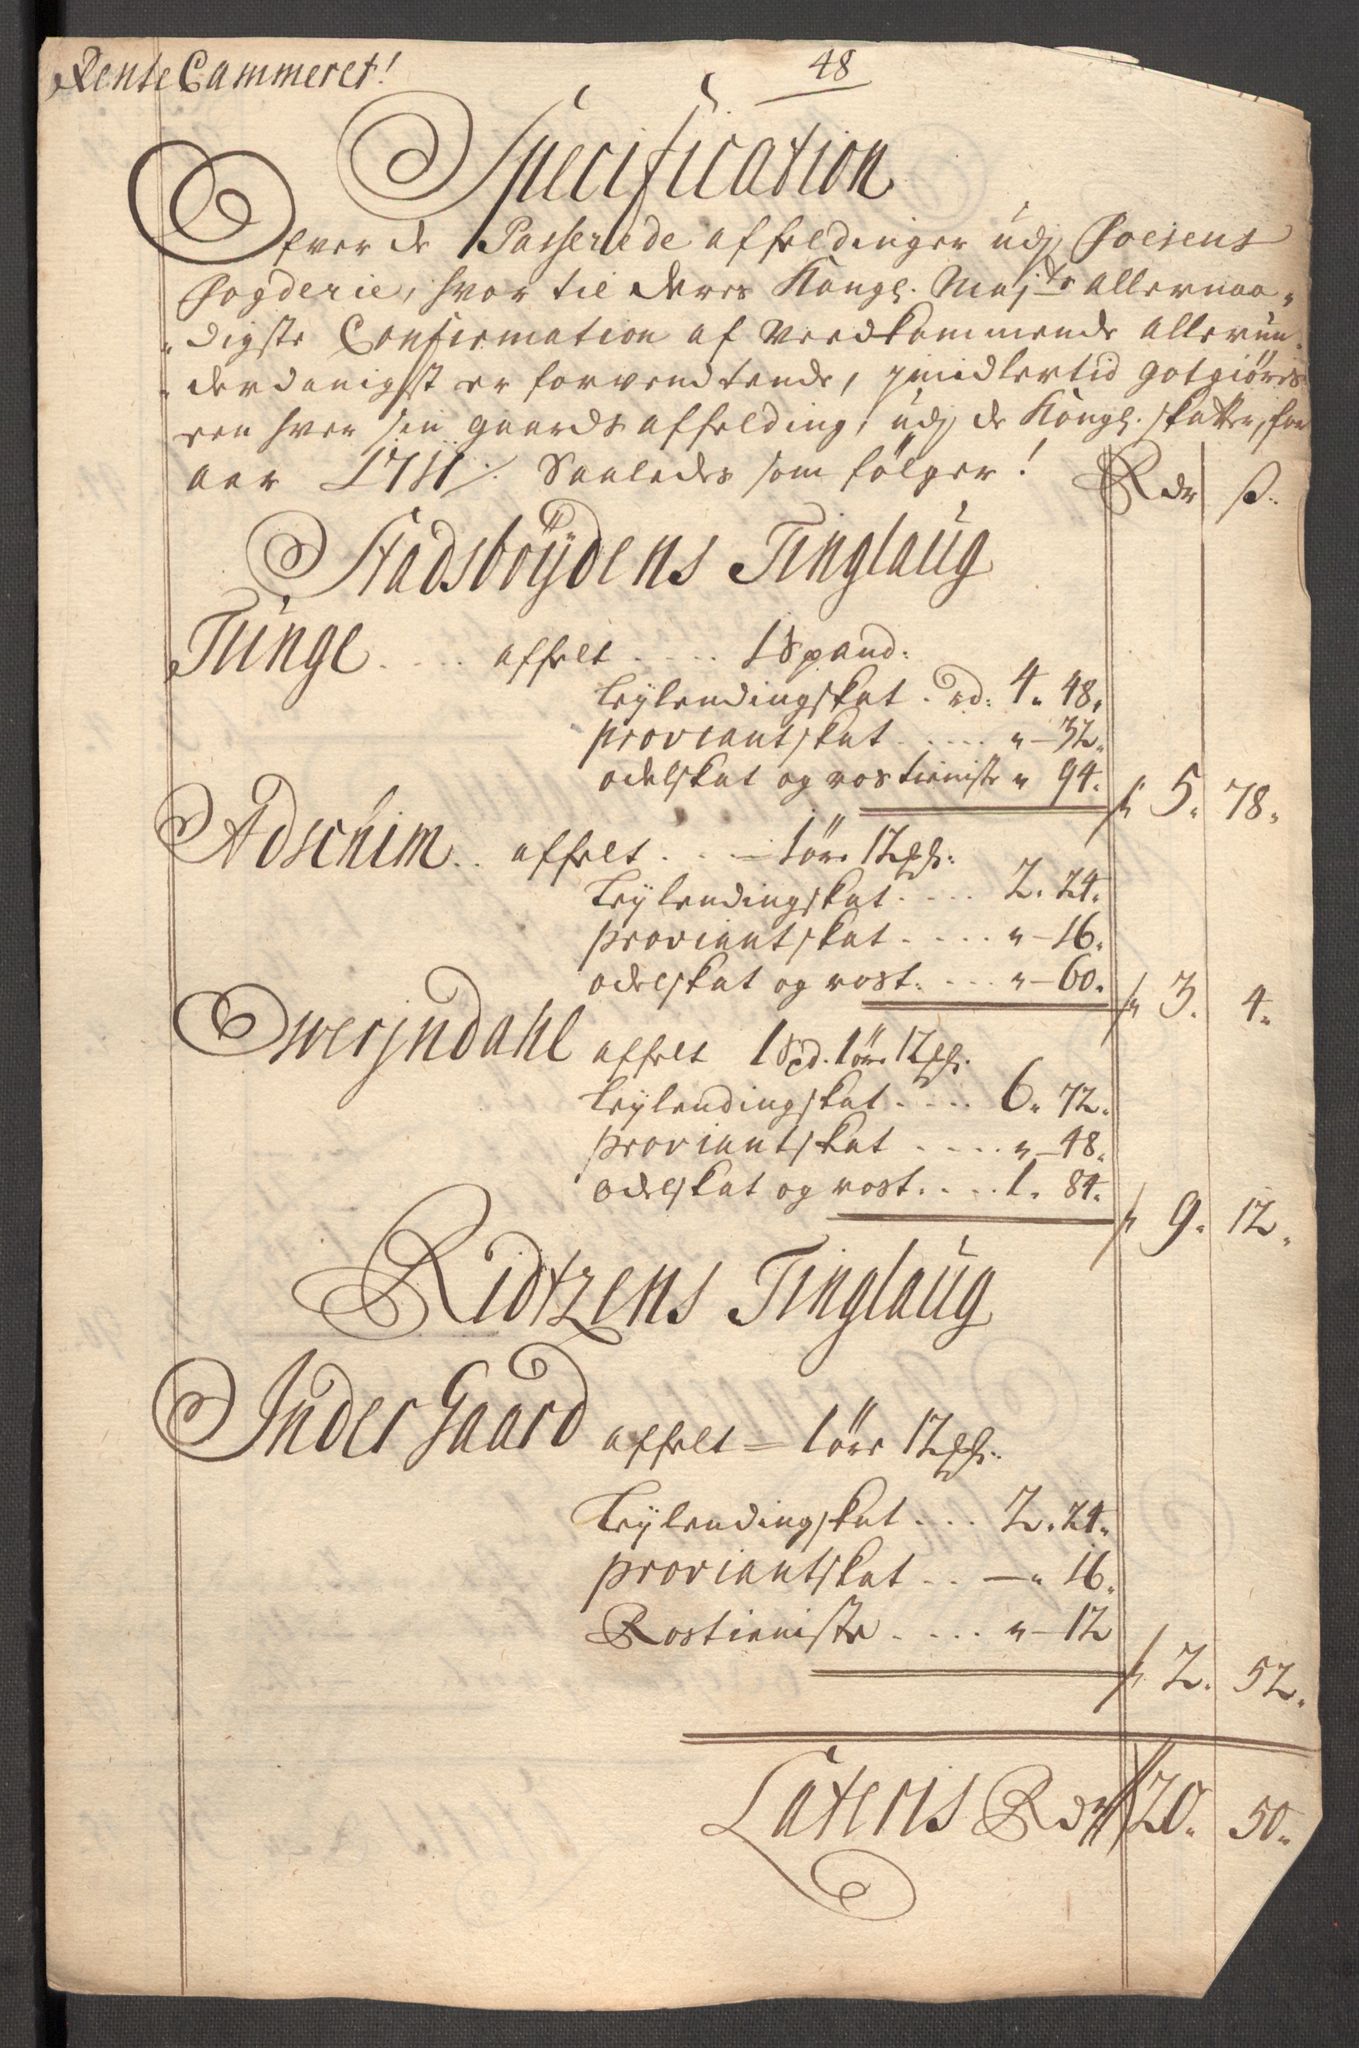 Rente Cammeret!
48
Specification
Ofver de Passerede affældinger udj Foesens
Fogderie, hvor til deres Kongl. Maj:ts allernaa-
digste Confirmation af Vedkommende allerun-
derdanigst er forvendtende, jmidlertid gotgiøres
een hver sin gaards affælding, udj de Kongl. skatter, for
aar 1711. Saaledes som følger!
Rdr ß.
Stadsböÿdens Tinglaug
Tunge.... affelt.... 1 Spand.
Leylendingskat. rd: 4. 48.
proviantskat..... " - 32.
odelskat og rostieniste " 94.
5. 78.
Adschiim.. affelt... - 1 öre 12 ß.
Leylendingskat.... 2. 24.
proviantskat.... " - 16.
odelskat og rost.... " - 60.
3. 4.
Swerjndahl affelt 1 Spd. 1 öre 12 ß.
Leylendingskat.... 6. 72.
proviantskat.... " - 48.
odelskat og rost.... 1. 84.
9. 12.
Ridtzens Tinglaug
Inder Gaard affelt = 1 öre 12 ß.
Leylendingskat... 2. 24.
proviantskat.. - " 16.
Rostieniste.... " - 12
2. 52.
Lateris Rdr 20. 50.